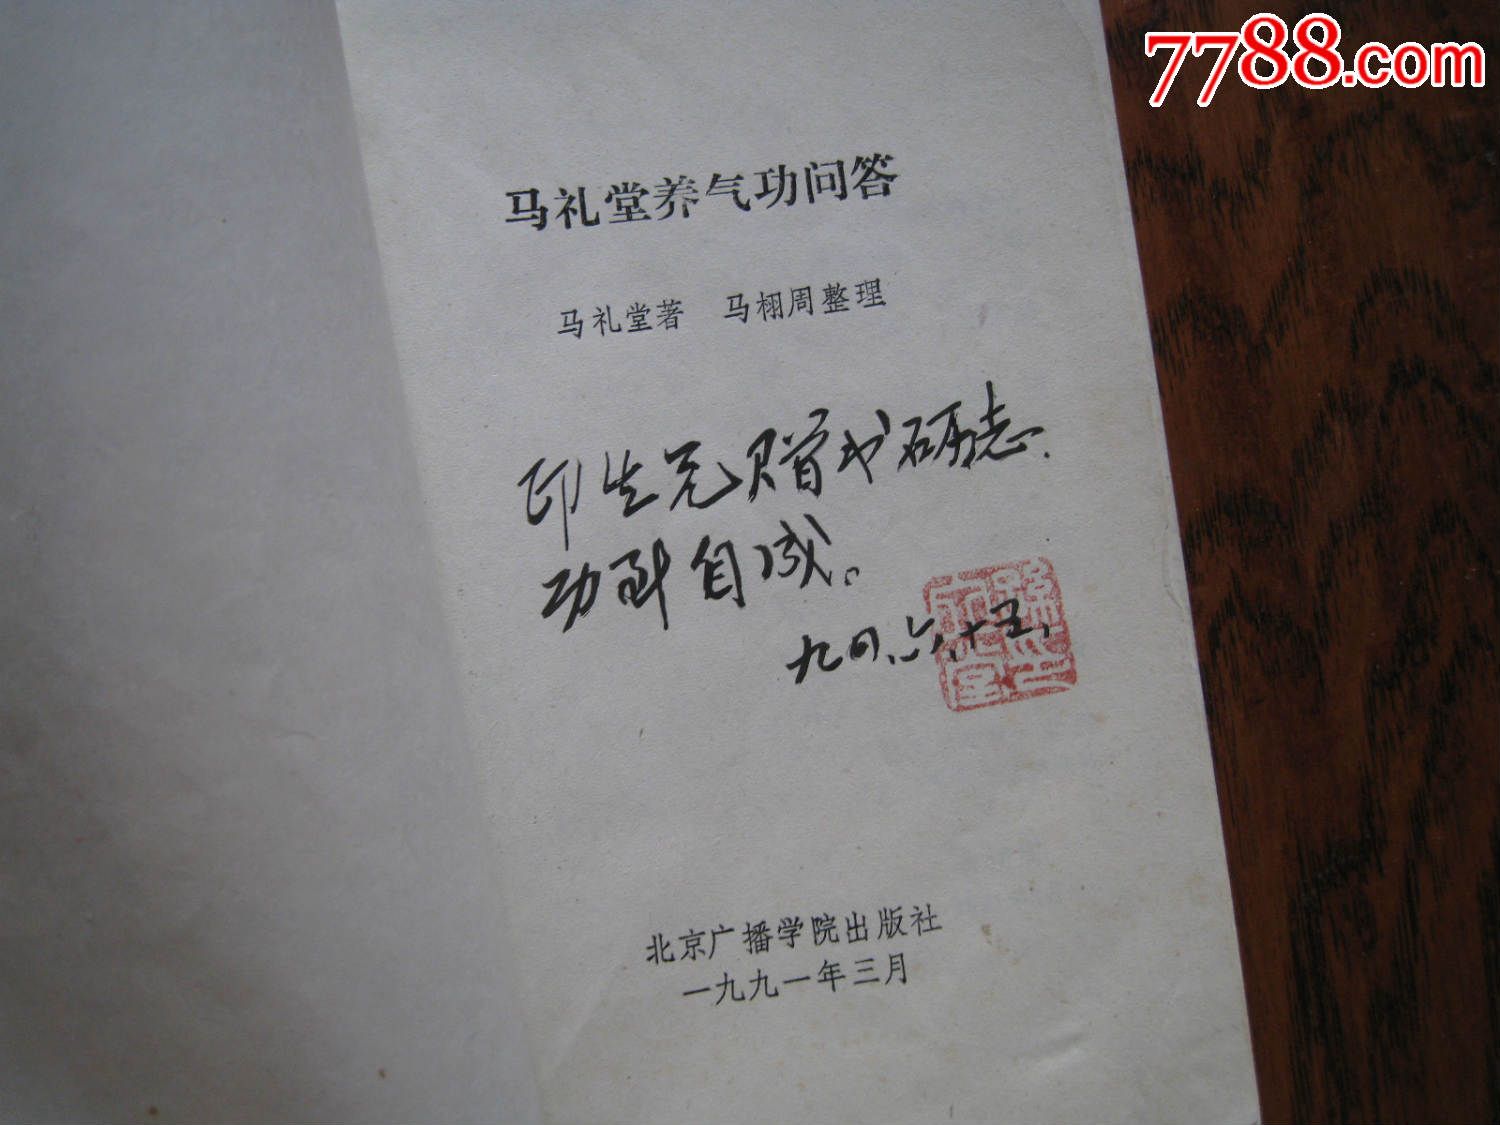 7788.com
马礼堂养气功问答
马礼堂著 马栩周整理
印生兄赠书砺志.
功到自成。
九四、六、十五,
北京广播学院出版社
一九九一年三月